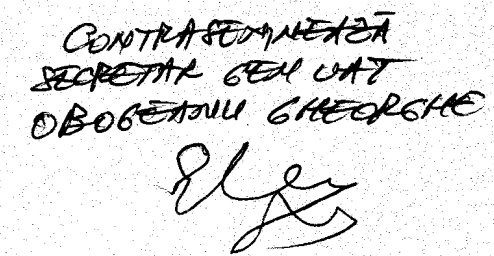 CONTRASEMNEAZĂ
SECRETAR GEN UAT
OBOGEANU GHEORGHE